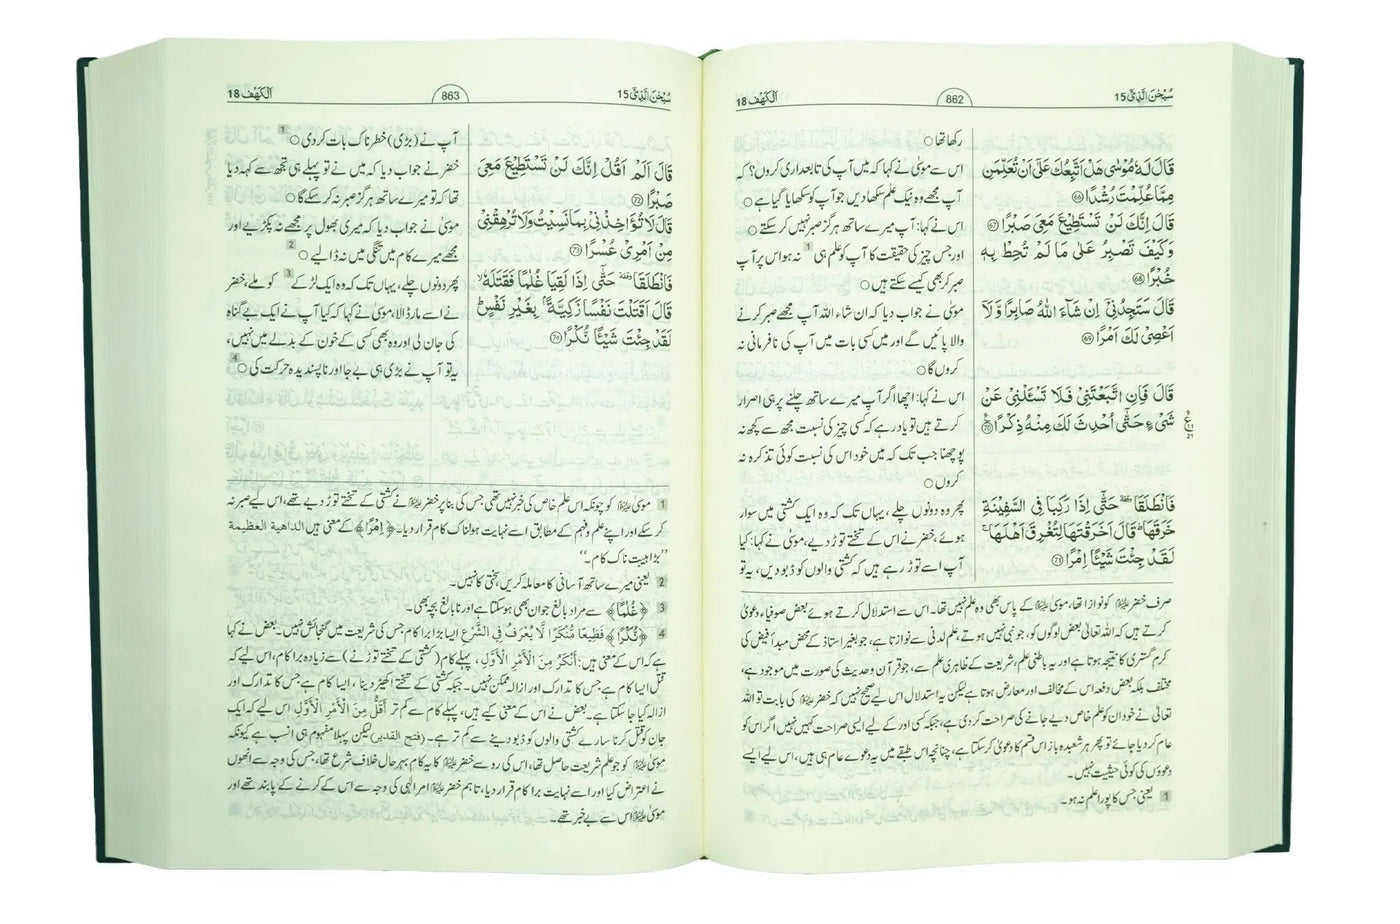 سُبْحٰنَ الَّذِیْ 15
862
اَلْکَهْف 18
قَالَ لَهٗ مُوْسٰى هَلْ اَتَّبِعُكَ عَلٰٓى اَنْ تُعَلِّمَنِ
مِمَّا عُلِّمْتَ رُشْدًا ﴿66﴾
قَالَ اِنَّكَ لَنْ تَسْتَطِيْعَ مَعِيَ صَبْرًا ﴿67﴾
وَكَيْفَ تَصْبِرُ عَلٰى مَا لَمْ تُحِطْ بِهٖ
خُبْرًا ﴿68﴾
قَالَ سَتَجِدُنِيْٓ اِنْ شَآءَ اللّٰهُ صَابِرًا وَّلَآ
اَعْصِيْ لَكَ اَمْرًا ﴿69﴾
قَالَ فَاِنِ اتَّبَعْتَنِيْ فَلَا تَسْـَٔلْنِيْ عَنْ
شَيْءٍ حَتّٰٓى اُحْدِثَ لَكَ مِنْهُ ذِكْرًا ﴿70﴾
فَانْطَلَقَا حَتّٰٓى اِذَا رَكِبَا فِي السَّفِيْنَةِ
خَرَقَهَا قَالَ اَخَرَقْتَهَا لِتُغْرِقَ اَهْلَهَا
لَقَدْ جِئْتَ شَيْـًٔا اِمْرًا ﴿71﴾
رکھا تھا ○
اس سے موسیٰ نے کہا کہ میں آپ کی تابعداری کروں؟ کہ
آپ مجھے وہ نیک علم سکھا دیں جو آپ کو سکھایا گیا ہے ○
اس نے کہا: آپ میرے ساتھ ہرگز صبر نہیں کر سکتے ○
اور جس چیز کی حقیقت کا آپ کو علم ہی 1 نہ ہو اس پر آپ
صبر کر بھی کیسے سکتے ہیں ○
موسیٰ نے جواب دیا کہ ان شاء اللہ آپ مجھے صبر کرنے
والا پائیں گے اور میں کسی بات میں آپ کی نافرمانی نہ
کروں گا ○
اس نے کہا: اچھا اگر آپ میرے ساتھ چلنے پر ہی اصرار
کرتے ہیں تو یاد رہے کہ کسی چیز کی نسبت مجھ سے کچھ نہ
پوچھنا جب تک کہ میں خود اس کی نسبت کوئی تذکرہ نہ
کروں ○
پھر وہ دونوں چلے، یہاں تک کہ وہ ایک کشتی میں سوار
ہوئے، خضر نے اس کے تختے توڑ دیے، موسیٰ نے کہا: کیا
آپ اسے توڑ رہے ہیں کہ کشتی والوں کو ڈبو دیں، یہ تو
صرف خضر علیہ السلام کو نوازا تھا، موسیٰ علیہ السلام کے پاس بھی وہ علم نہیں تھا۔ اس سے استدلال کرتے ہوئے بعض صوفیاء دعویٰ
کرتے ہیں کہ اللہ تعالیٰ بعض لوگوں کو، جو نبی نہیں ہوتے، علم لدنی سے نوازتا ہے، جو بغیر استاذ کے محض مبدأ فیض کی
کرم گستری کا نتیجہ ہوتا ہے اور یہ باطنی علم، شریعت کے ظاہری علم سے، جو قرآن و حدیث کی صورت میں موجود ہے،
مختلف بلکہ بعض دفعہ اس کے مخالف اور معارض ہوتا ہے لیکن یہ استدلال اس لیے صحیح نہیں کہ خضر علیہ السلام کی بابت تو اللہ
تعالیٰ نے خود ان کو علم خاص دیے جانے کی صراحت کر دی ہے، جبکہ کسی اور کے لیے ایسی صراحت کہیں نہیں اگر اس کو
عام کر دیا جائے تو پھر ہر شعبدہ باز اس قسم کا دعویٰ کر سکتا ہے، چنانچہ اس طبقے میں یہ دعوے عام ہی ہیں، اس لیے ایسے
دعوؤں کی کوئی حیثیت نہیں۔
1 یعنی جس کا پورا علم نہ ہو۔
سُبْحٰنَ الَّذِیْ 15
863
اَلْکَهْف 18
قَالَ اَلَمْ اَقُلْ اِنَّكَ لَنْ تَسْتَطِيْعَ مَعِيَ
صَبْرًا ﴿72﴾
قَالَ لَا تُؤَاخِذْنِيْ بِمَا نَسِيْتُ وَلَا تُرْهِقْنِيْ
مِنْ اَمْرِيْ عُسْرًا ﴿73﴾
فَانْطَلَقَا حَتّٰٓى اِذَا لَقِيَا غُلٰمًا فَقَتَلَهٗ
قَالَ اَقَتَلْتَ نَفْسًا زَكِيَّةًۢ بِغَيْرِ نَفْسٍ
لَقَدْ جِئْتَ شَيْـًٔا نُّكْرًا ﴿74﴾
آپ نے (بڑی) خطرناک بات کر دی ○ 1
خضر نے جواب دیا کہ میں نے تو پہلے ہی تجھ سے کہہ دیا
تھا کہ تو میرے ساتھ ہرگز صبر نہ کر سکے گا ○
موسیٰ نے جواب دیا کہ میری بھول پر مجھے نہ پکڑیے اور
مجھے میرے کام میں تنگی میں نہ ڈالیے ○ 2
پھر دونوں چلے، یہاں تک کہ وہ ایک لڑکے 3 کو ملے، خضر
نے اسے مار ڈالا، موسیٰ نے کہا کہ کیا آپ نے ایک بے گناہ
کی جان لی اور وہ بھی کسی کے خون کے بدلے میں نہیں،
یہ تو آپ نے بڑی ہی بے جا اور ناپسندیدہ حرکت کی ○ 4
1 موسیٰ علیہ السلام کو چونکہ اس علم خاص کی خبر نہیں تھی جس کی بنا پر خضر علیہ السلام نے کشتی کے تختے توڑ دیے تھے، اس لیے صبر نہ
کر سکے اور اپنے علم و فہم کے مطابق اسے نہایت ہولناک کام قرار دیا۔ ﴿اِمْرًا﴾ کے معنی ہیں الداهية العظيمة
”بڑا ہیبت ناک کام۔“
2 یعنی میرے ساتھ آسانی کا معاملہ کریں، سختی کا نہیں۔
3 ﴿غُلٰمًا﴾ سے مراد بالغ جوان بھی ہو سکتا ہے اور نابالغ بچہ بھی۔
4 ﴿نُكْرًا﴾ فَظِيعًا مُنْكَرًا لَا يُعْرَفُ فِي الشَّرْعِ ایسا بڑا برا کام جس کی شریعت میں گنجائش نہیں۔ بعض نے کہا
ہے کہ اس کے معنی ہیں: أَنْكَرُ مِنَ الْأَمْرِ الْأَوَّلِ، پہلے کام (کشتی کے تختے توڑنے) سے زیادہ برا کام، اس لیے کہ
قتل ایسا کام ہے جس کا تدارک اور ازالہ ممکن نہیں۔ جبکہ کشتی کے تختے اکھیڑ دینا، ایسا کام ہے جس کا تدارک اور
ازالہ کیا جا سکتا ہے۔ بعض نے اس کے معنی کیے ہیں، پہلے کام سے کم تر أَقَلُّ مِنَ الْأَمْرِ الْأَوَّلِ اس لیے کہ ایک
جان کو قتل کرنا سارے کشتی والوں کو ڈبو دینے سے کم تر ہے۔ (فتح القدیر) لیکن پہلا مفہوم ہی انسب ہے کیونکہ
موسیٰ علیہ السلام کو جو علم شریعت حاصل تھا، اس کی رو سے خضر علیہ السلام کا یہ کام بہرحال خلاف شرع تھا، جس کی وجہ سے انھوں
نے اعتراض کیا اور اسے نہایت برا کام قرار دیا، تاہم خضر علیہ السلام امر الٰہی کی وجہ سے اس کے کرنے کے پابند تھے اور
موسیٰ علیہ السلام اس سے بے خبر تھے۔